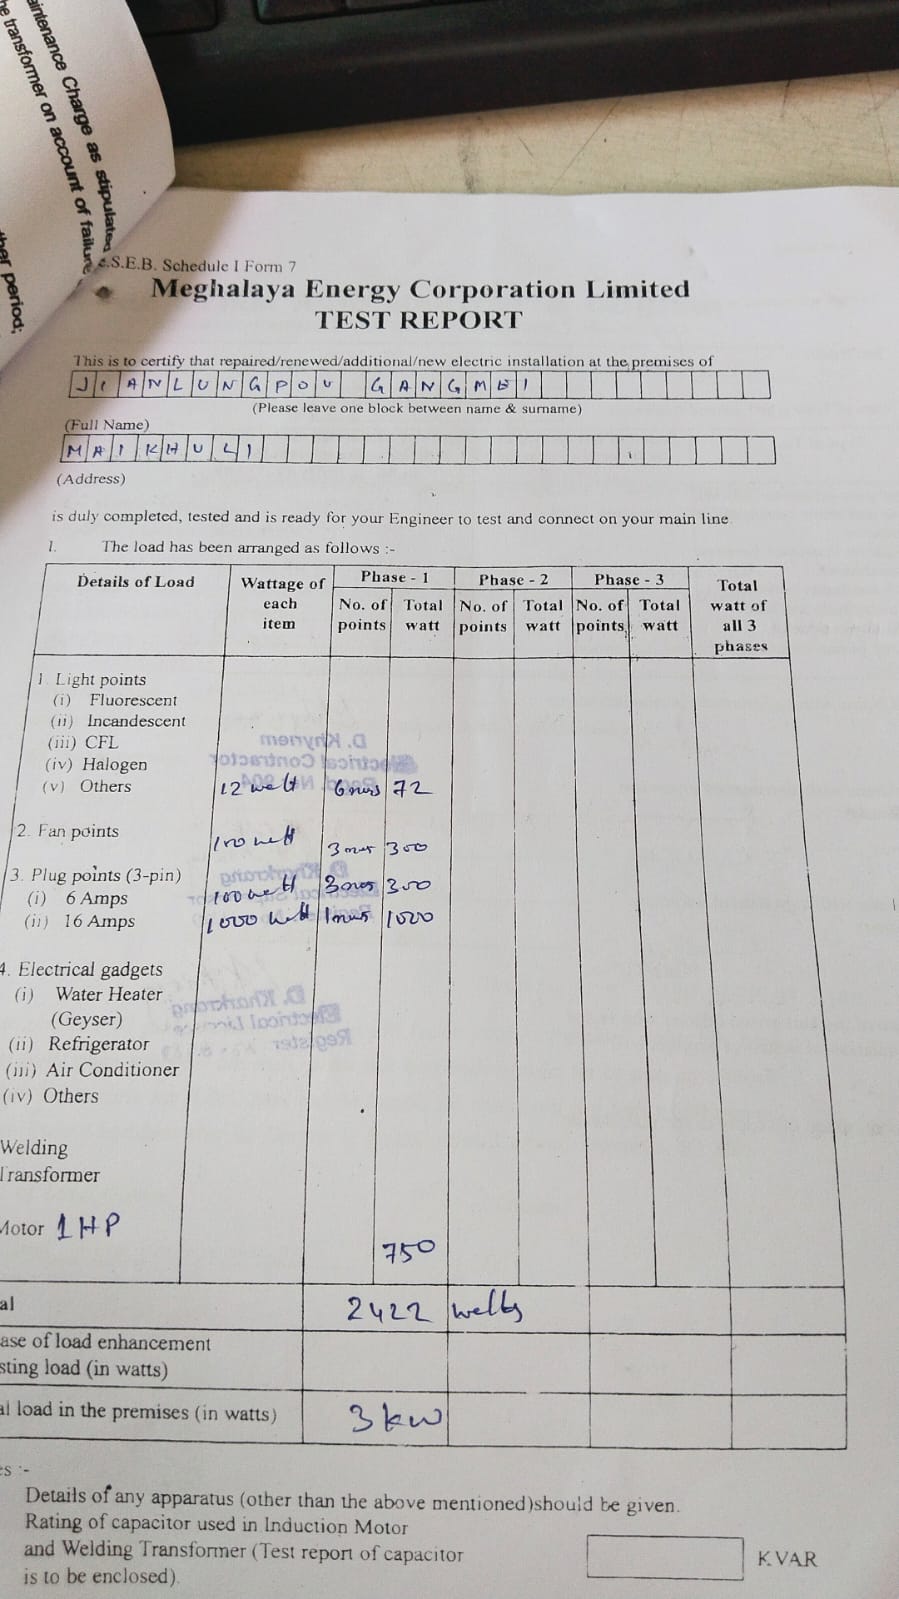 aintenance Charge as stipulated
he transformer on account of failure
ther period;
.S.E.B. Schedule I Form 7
Meghalaya Energy Corporation Limited
TEST REPORT
This is to certify that repaired/renewed/additional/new electric installation at the premises of
JIANLUNGPOU GANGMEI
(Please leave one block between name & surname)
(Full Name)
MAIKHULI
(Address)
is duly completed, tested and is ready for your Engineer to test and connect on your main line
1. The load has been arranged as follows :-
Details of Load Wattage of each item Phase - 1 Phase - 2 Phase - 3 Total watt of all 3 phases
No. of points Total watt No. of points Total watt No. of points Total watt
1. Light points
(i) Fluorescent
(ii) Incandescent
(iii) CFL
(iv) Halogen
(v) Others 12 watt 6 nos 72
2. Fan points 100 watt 3 nos 300
3. Plug points (3-pin)
(i) 6 Amps 100 watt 3 nos 300
(ii) 16 Amps 1000 watt 1 nos 1000
4. Electrical gadgets
(i) Water Heater
(Geyser)
(ii) Refrigerator
(iii) Air Conditioner
(iv) Others
Welding
Transformer
Motor 1 HP 750
al 2422 watts
ase of load enhancement
sting load (in watts)
al load in the premises (in watts) 3 kw
es :-
Details of any apparatus (other than the above mentioned) should be given.
Rating of capacitor used in Induction Motor
and Welding Transformer (Test report of capacitor
is to be enclosed).
KVAR